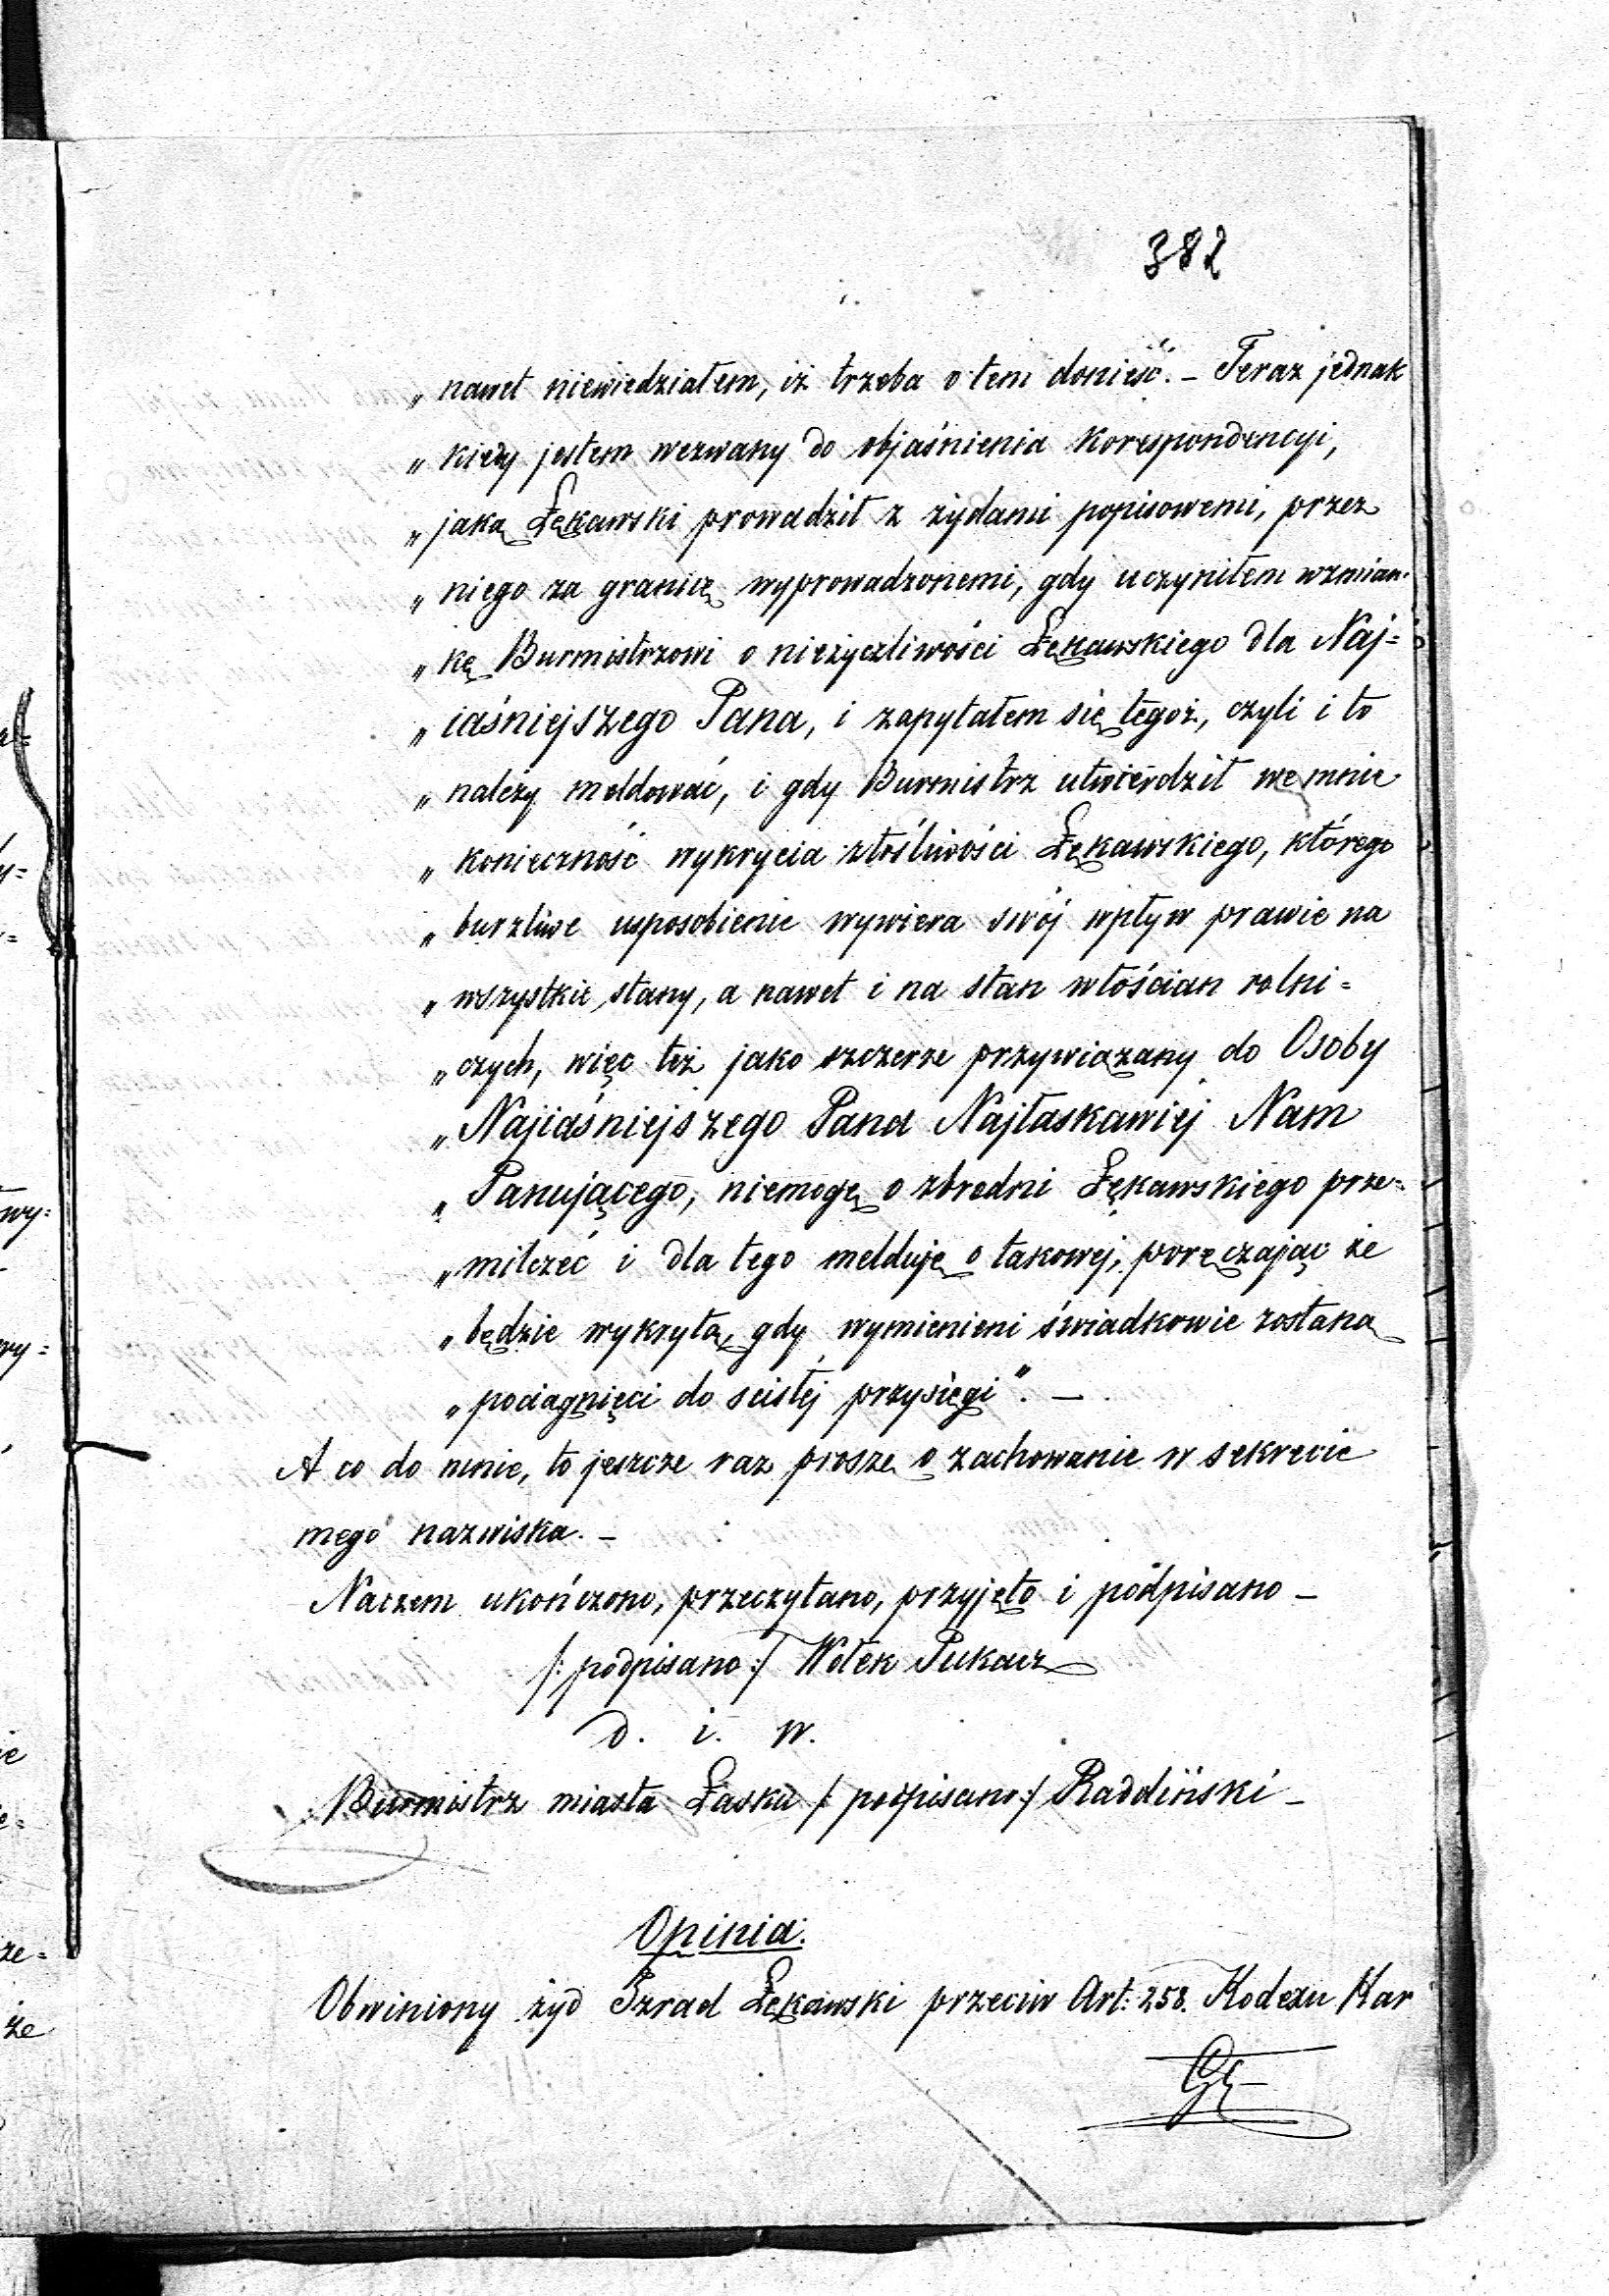 382
„ nawet niewiedziałem, iż trzeba o tem donieść. – Teraz jednak
„ kiedy jestem wezwany do objaśnienia korespondencyi,
„ jaką Łękawski prowadził z żydami popisowemi, przez
„ niego za granicę wyprowadzonemi, gdy uczyniłem wzmian-
„ kę Burmistrzowi o nieżyczliwości Łękawskiego dla Naj=
„ iaśniejszego Pana, i zapytałem się tegoż, czyli i to
„ należy meldować, i gdy Burmistrz utwierdził we mnie
„ konieczność wykrycia złośliwości Łękawskiego, którego
„ burzliwe usposobienie wywiera swój wpływ prawie na
„ wszystkie stany, a nawet i na stan włościan rolni=
„ czych, więc też jako szczerze przywiązany do Osoby
„ Najiaśniejszego Pana Najłaskawiej Nam
„ Panującego, niemogę o zbrodni Łękawskiego prze-
„ milczeć i dla tego melduję o takowej, poręczając że
„ będzie wykryta, gdy wymienieni świadkowie zostaną
„ pociągnięci do scisłéj przysięgi”. –
A co do mnie, to jeszcze raz proszę o zachowanie w sekrecie
mego nazwiska. –
Naczem ukończono, przeczytano, przyjęto i podpisano –
/: podpisano :/ Wołek Pukacz
d. i. w.
Burmistrz miasta Łasku /: podpisano :/ Raddiński –
Opinia:
Obwiniony żyd Izrael Łękawski przeciw Art: 258. Kodexu Kar